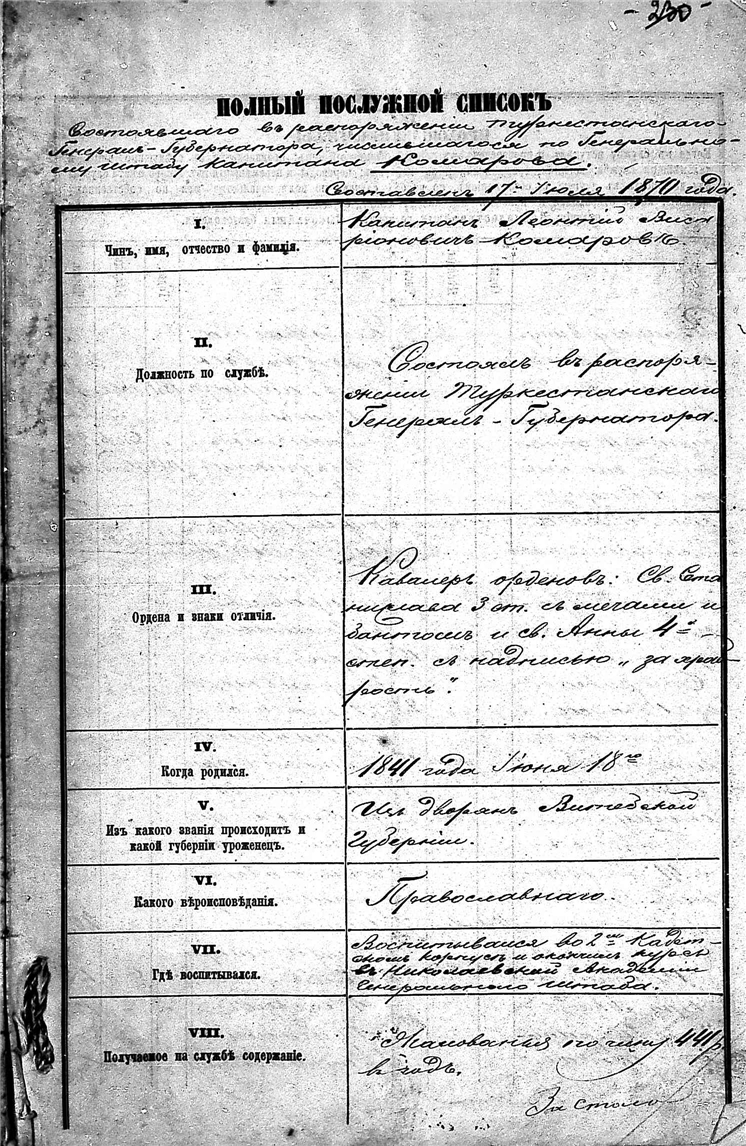 - 230 -
ПОЛНЫЙ ПОСЛУЖНОЙ СПИСОКЪ
Состоявшаго въ распоряженіи Туркестанскаго
Генералъ-Губернатора, числившагося по Генерально-
му Штабу Капитана Комарова.
Составленъ 17го Іюля 1870 года.
I.
Чинъ, имя, отчество и фамилія.
Капитанъ Леонтій Виса
ріоновичъ Комаровъ
II.
Должность по службѣ.
Состоялъ въ распоря-
женіи Туркестанскаго
Генералъ-Губернатора.
III.
Ордена и знаки отличія.
Кавалеръ орденовъ: Св. Ста
нислава 3 ст. съ мечами и
бантомъ и св. Анны 4й
степ. съ надписью „за храб-
рость".
IV.
Когда родился.
1841 года Іюня 18го
V.
Изъ какого званія происходитъ и
какой губерніи уроженецъ.
Изъ дворянъ Витебской
Губерніи.
VI.
Какого вѣроисповѣданія.
Православнаго.
VII.
Гдѣ воспитывался.
Воспитывался во 2мъ Кадет-
скомъ корпусѣ и окончилъ курсъ
въ Николаевской Академіи
Генеральнаго Штаба.
VIII.
Получаемое на службѣ содержаніе.
Жалованья по чину 441 р
въ годъ.
За столо